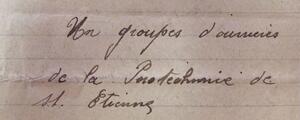 Un groupes d'ouvriers
de la Pirotechnie de
St. Etienne